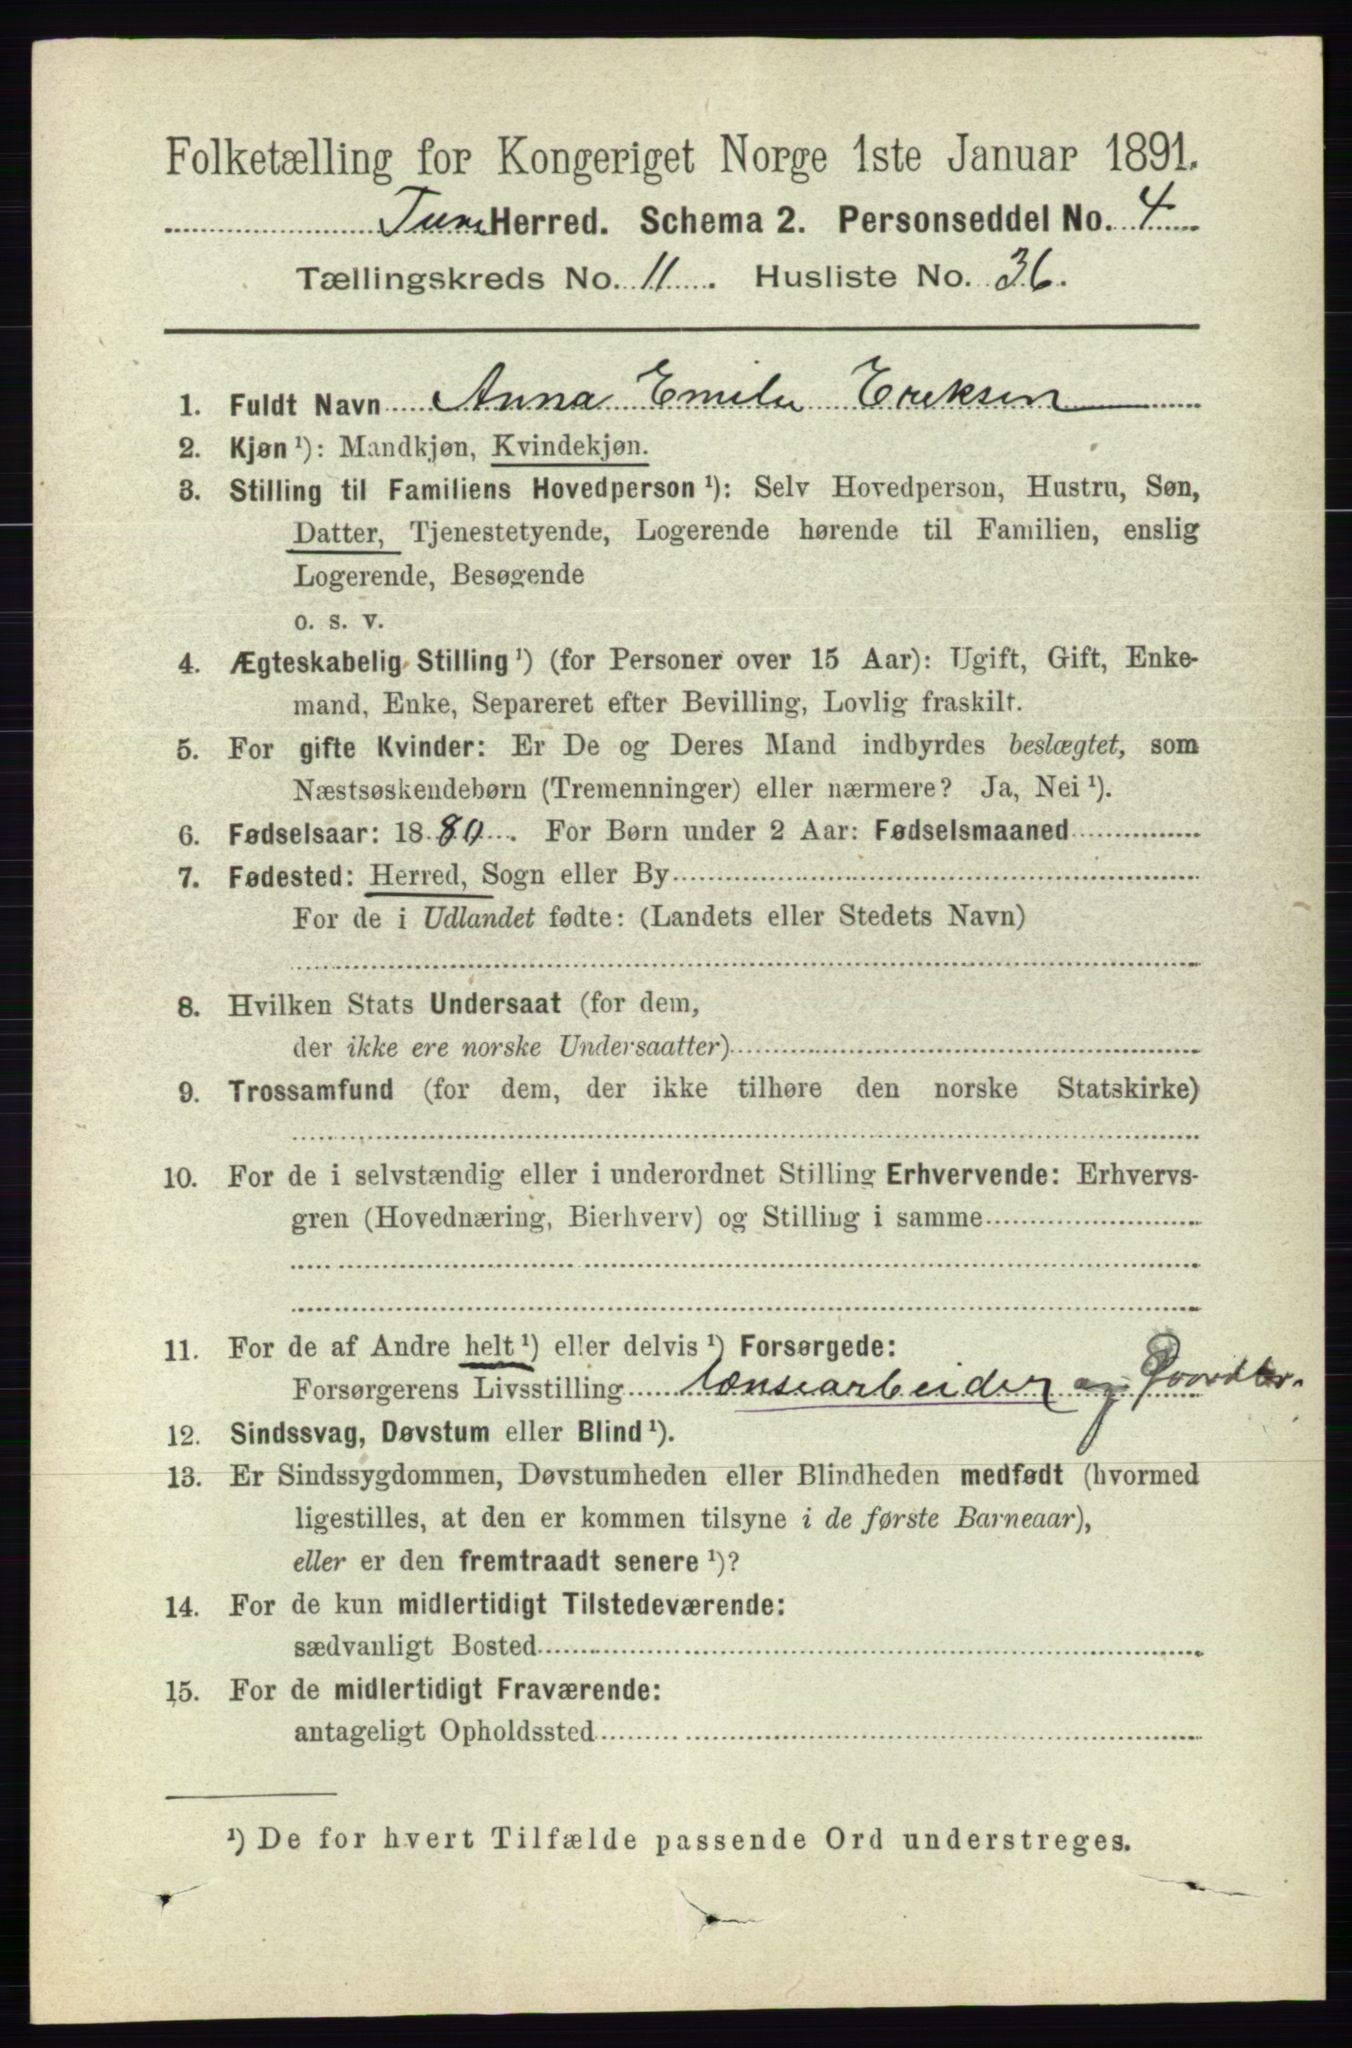 Folketælling for Kongeriget Norge 1ste Januar 1891.
Tune Herred. Schema 2. Personseddel No. 4
Tællingskreds No. 11. Husliste No. 36.
1. Fuldt Navn Anna Emilie Eriksen
2. Kjøn ¹): Mandkjøn, Kvindekjøn.
3. Stilling til Familiens Hovedperson ¹): Selv Hovedperson, Hustru, Søn,
Datter, Tjenestetyende, Logerende hørende til Familien, enslig
Logerende, Besøgende
o. s. v.
4. Ægteskabelig Stilling ¹) (for Personer over 15 Aar): Ugift, Gift, Enke-
mand, Enke, Separeret efter Bevilling, Lovlig fraskilt.
5. For gifte Kvinder: Er De og Deres Mand indbyrdes beslægtet, som
Næstsøskendebørn (Tremenninger) eller nærmere? Ja, Nei ¹).
6. Fødselsaar: 1880. For Børn under 2 Aar: Fødselsmaaned
7. Fødested: Herred, Sogn eller By
For de i Udlandet fødte: (Landets eller Stedets Navn)
8. Hvilken Stats Undersaat (for dem,
der ikke ere norske Undersaatter)
9. Trossamfund (for dem, der ikke tilhøre den norske Statskirke)
10. For de i selvstændig eller i underordnet Stilling Erhvervende: Erhvervs-
gren (Hovednæring, Bierhverv) og Stilling i samme
11. For de af Andre helt ¹) eller delvis ¹) Forsørgede:
Forsørgerens Livsstilling lænsearbeider og
12. Sindssvag, Døvstum eller Blind ¹).
13. Er Sindssygdommen, Døvstumheden eller Blindheden medfødt (hvormed
ligestilles, at den er kommen tilsyne i de første Barneaar),
eller er den fremtraadt senere ¹)?
14. For de kun midlertidigt Tilstedeværende:
sædvanligt Bosted
15. For de midlertidigt Fraværende:
antageligt Opholdssted
¹) De for hvert Tilfælde passende Ord understreges.